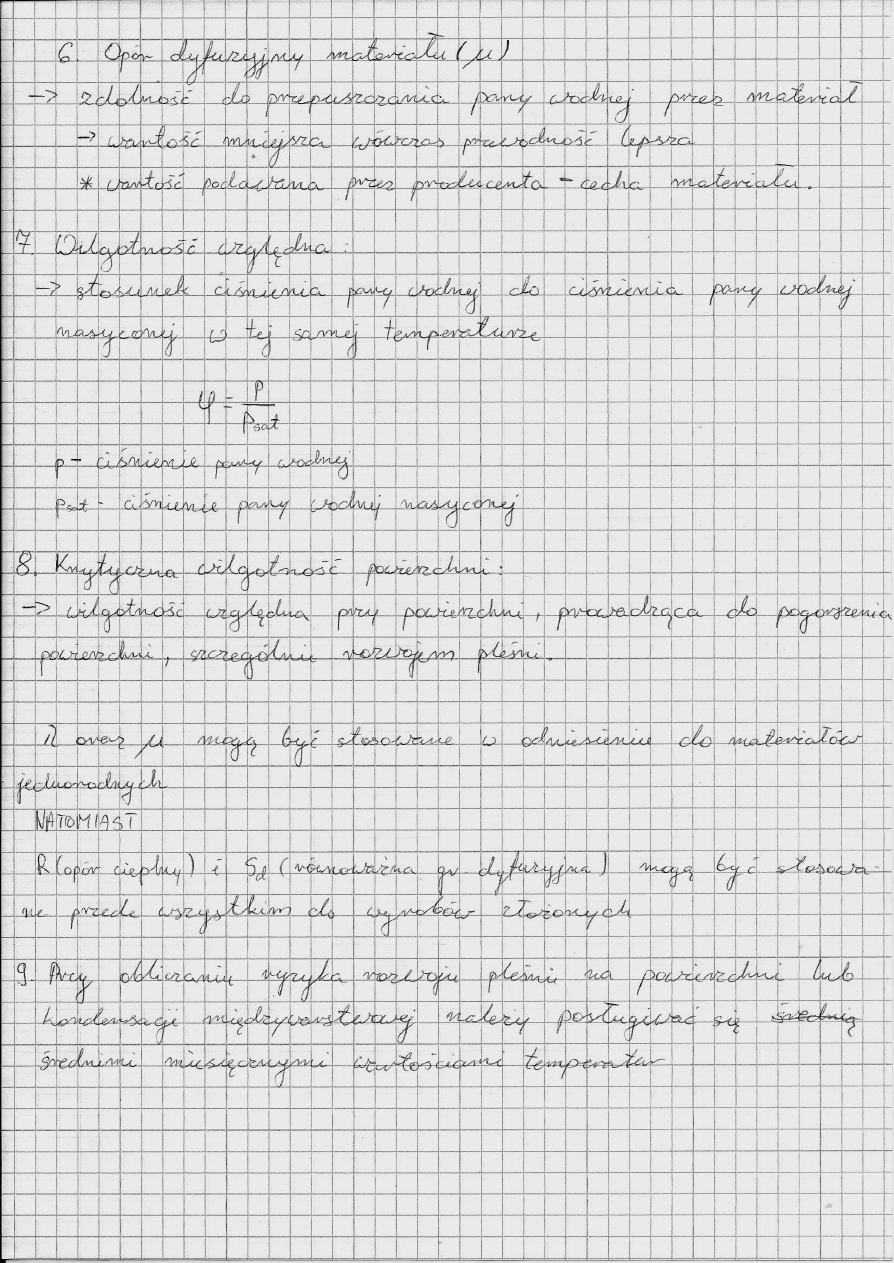 6. Opór dyfuzyjny materiału (μ)
→ zdolność do przepuszczania pary wodnej przez materiał
→ wartość mniejsza wówczas przewodność lepsza
* wartość podawana przez producenta - cecha materiału.
7. Wilgotność względna:
→ stosunek ciśnienia pary wodnej do ciśnienia pary wodnej
nasyconej w tej samej temperaturze
φ = p / psat
p - ciśnienie pary wodnej
psat - ciśnienie pary wodnej nasyconej
8. Krytyczna wilgotność powierzchni:
→ wilgotność względna przy powierzchni, prowadząca do pogorszenia
powierzchni, szczególnie rozwojem pleśni.
λ oraz μ mogą być stosowane w odniesieniu do materiałów
jednorodnych
NATOMIAST
R (opór cieplny) i Sd (równoważna gr. dyfuzyjna) mogą być stosowa-
ne przede wszystkim do wyrobów złożonych
9. Przy obliczaniu ryzyka rozwoju pleśni na powierzchni lub
kondensacji międzywarstwowej należy posługiwać się średnią
średnimi miesięcznymi wartościami temperatur